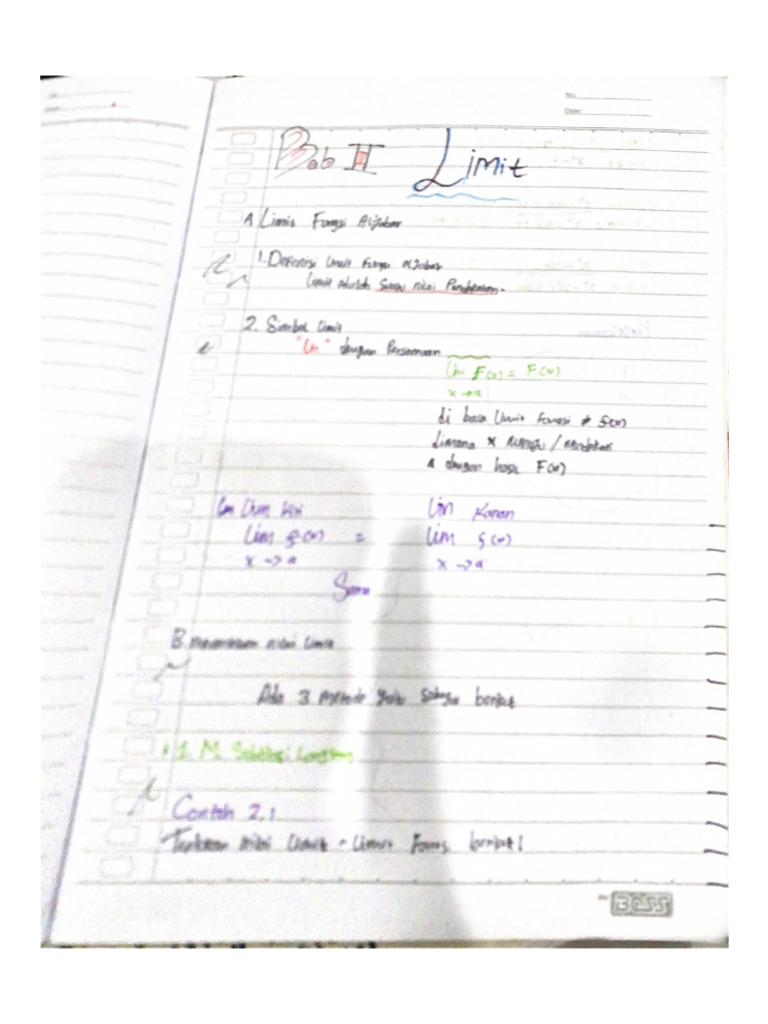 No.
Date:
Bab II Limit
A Limit Fungsi Aljabar
1. Definisi Limit Fungsi Aljabar
Limit adalah Suatu nilai Pendekatan.
2. Simbol Limit
"Lim" dengan Persamaan
Lim F(x) = F(x)
x → a
di baca Limit fungsi f(x)
dimana x menuju / mendekati
a dengan hasil F(x)
Lim Kiri Lim Kanan
Lim f(x) = Lim f(x)
x → a x → a
Sama
B. Menentukan nilai Limit
Ada 3 metode yaitu sebagai berikut
1. M. Subtitusi Langsung
Contoh 2.1
Tentukan nilai Limit - Limit Fungsi berikut!
Boss